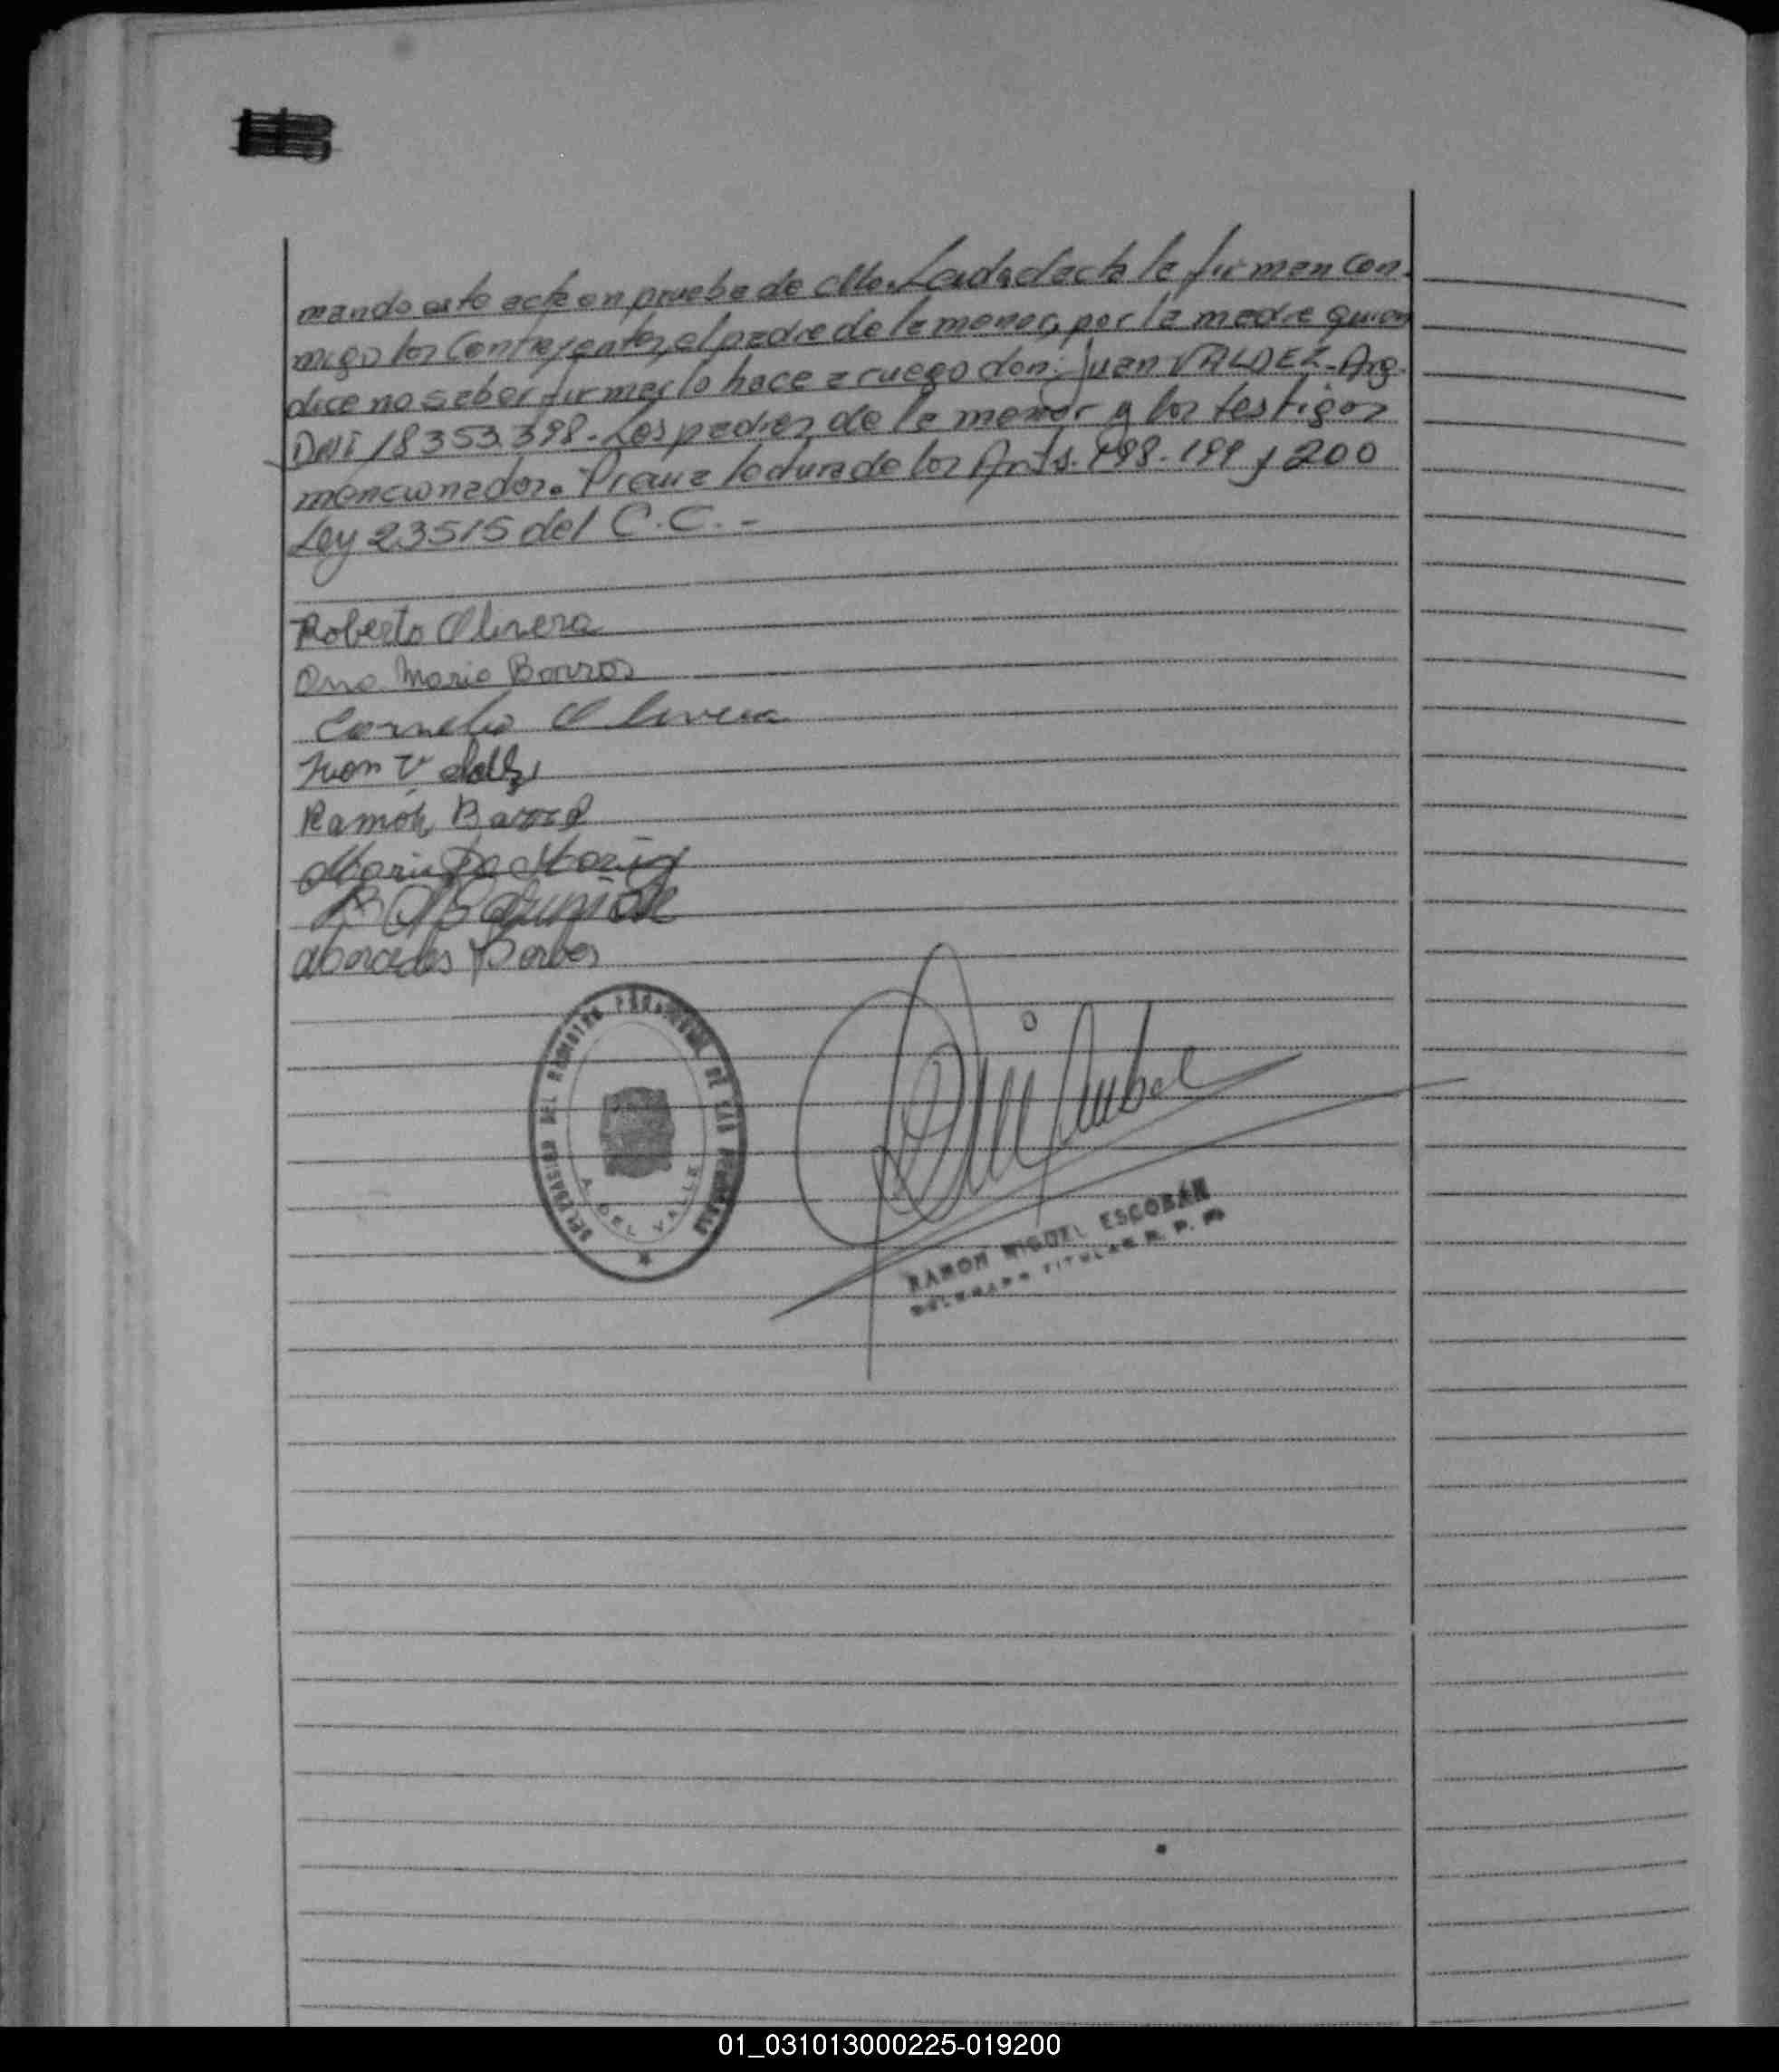 mando este acto en prueba de ello. Leida el acta la firman con-
migo los Contrayentes, el padre de la menor, por la madre quien
dice no saber firmar lo hace a ruego don: Juan VALDEZ-Arg.
DNI 18353.398. Los padres de la menor y los testigos
mencionados. Previa lectura de los Arts. 198-199 y 200
Ley 23515 del C.C.-
Roberto Olivera
Ana Maria Barros
Cornelio Olivera
Juan Valdez
Ramón Barro
Mercedes
DELEGACION DEL REGISTRO PROVINCIAL DE LAS PERSONAS
A. DEL VALLE
RAMON MIGUEL ESCOBAR
DELEGADO TITULAR R. P. P.
01_031013000225-019200